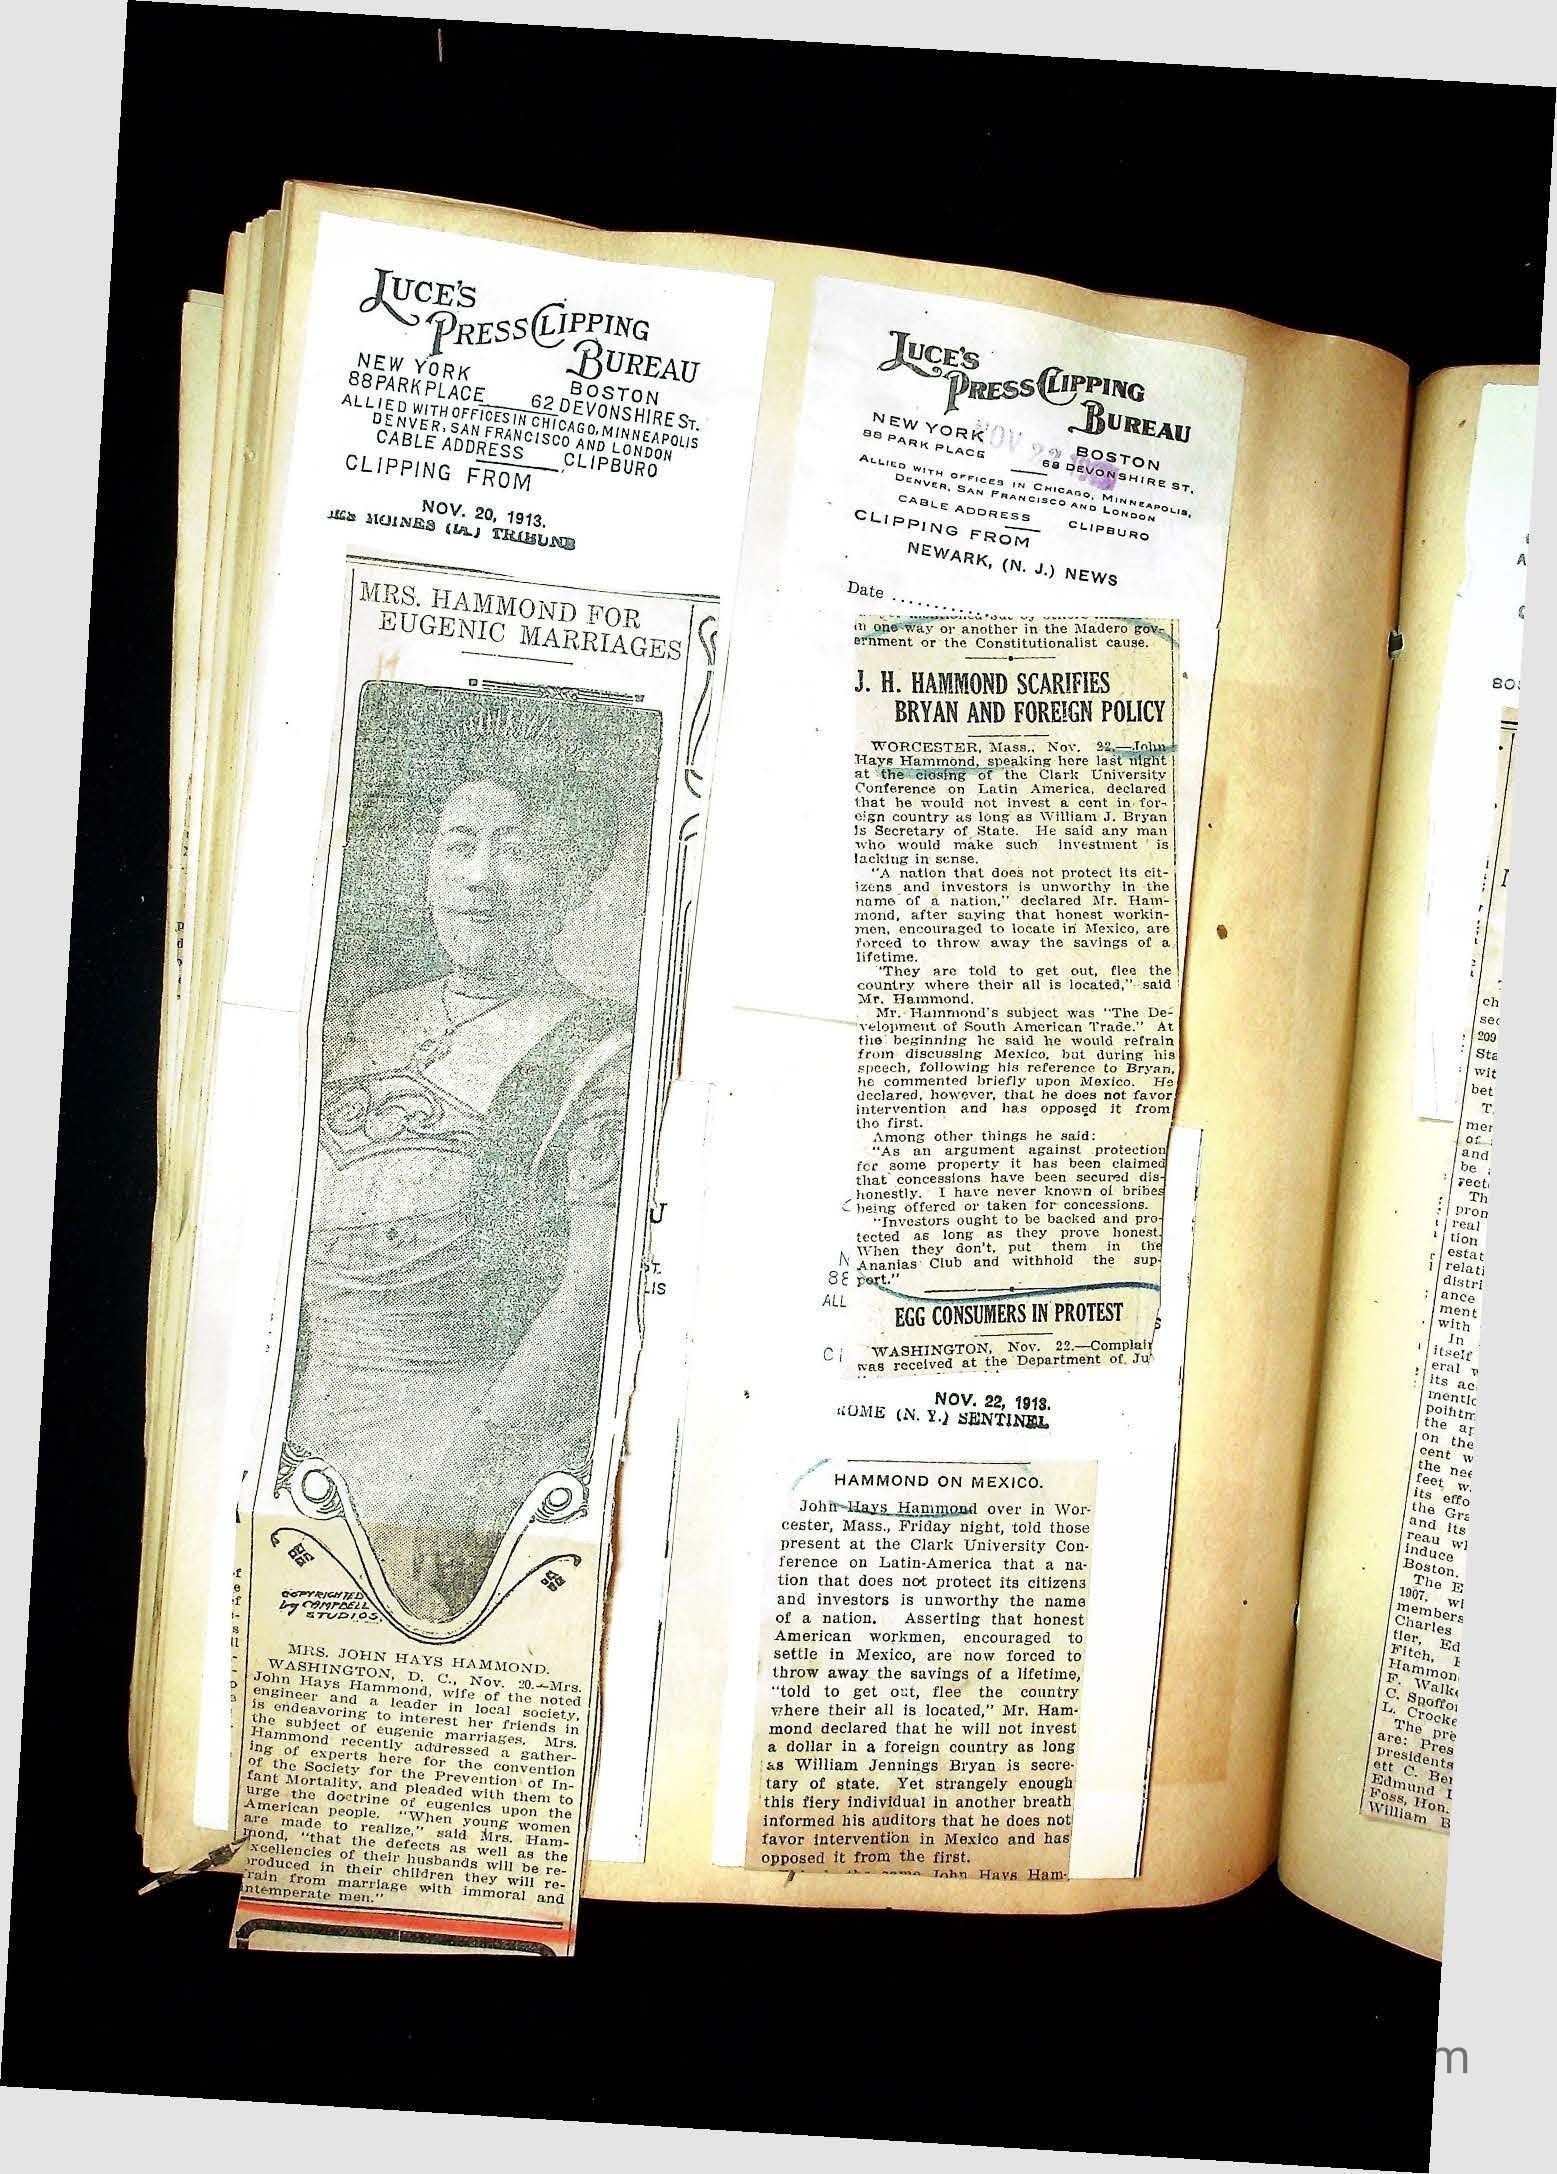 LUCE'S
PRESS CLIPPING
BUREAU
NEW YORK
BOSTON
88 PARK PLACE
62 DEVONSHIRE ST.
ALLIED WITH OFFICES IN CHICAGO, MINNEAPOLIS
DENVER, SAN FRANCISCO AND LONDON
CABLE ADDRESS CLIPBURO
CLIPPING FROM
NOV. 20, 1913.
MOINES (IA.) TRIBUNE
MRS. HAMMOND FOR
EUGENIC MARRIAGES
COPYRIGHTED
by CAMPBELL
STUDIOS.
MRS. JOHN HAYS HAMMOND.
WASHINGTON, D. C., Nov. 20.—Mrs.
John Hays Hammond, wife of the noted
engineer and a leader in local society,
is endeavoring to interest her friends in
the subject of eugenic marriages. Mrs.
Hammond recently addressed a gather-
ing of experts here for the convention
of the Society for the Prevention of In-
fant Mortality, and pleaded with them to
urge the doctrine of eugenics upon the
American people. "When young women
are made to realize," said Mrs. Ham-
mond, "that the defects as well as the
excellencies of their husbands will be re-
produced in their children they will re-
frain from marriage with immoral and
intemperate men."
LUCE'S
PRESS CLIPPING
BUREAU
NEW YORK
BOSTON
88 PARK PLACE
68 DEVONSHIRE ST.
ALLIED WITH OFFICES IN CHICAGO, MINNEAPOLIS,
DENVER, SAN FRANCISCO AND LONDON
CABLE ADDRESS CLIPBURO
CLIPPING FROM
NEWARK, (N. J.) NEWS
Date ............
in one way or another in the Madero gov-
ernment or the Constitutionalist cause.
J. H. HAMMOND SCARIFIES
BRYAN AND FOREIGN POLICY
WORCESTER, Mass., Nov. 22.—John
Hays Hammond, speaking here last night
at the closing of the Clark University
Conference on Latin America, declared
that he would not invest a cent in for-
eign country as long as William J. Bryan
is Secretary of State. He said any man
who would make such investment is
lacking in sense.
"A nation that does not protect its cit-
izens and investors is unworthy in the
name of a nation," declared Mr. Ham-
mond, after saying that honest workin-
men, encouraged to locate in Mexico, are
forced to throw away the savings of a
lifetime.
"They are told to get out, flee the
country where their all is located," said
Mr. Hammond.
Mr. Hammond's subject was "The De-
velopment of South American Trade." At
the beginning he said he would refrain
from discussing Mexico, but during his
speech, following his reference to Bryan,
he commented briefly upon Mexico. He
declared, however, that he does not favor
intervention and has opposed it from
the first.
Among other things he said:
"As an argument against protection
for some property it has been claimed
that concessions have been secured dis-
honestly. I have never known of bribes
being offered or taken for concessions.
"Investors ought to be backed and pro-
tected as long as they prove honest.
When they don't, put them in the
Ananias Club and withhold the sup-
port."
EGG CONSUMERS IN PROTEST
WASHINGTON, Nov. 22.—Complain
was received at the Department of Ju
NOV. 22, 1913.
ROME (N. Y.) SENTINEL
HAMMOND ON MEXICO.
John Hays Hammond over in Wor-
cester, Mass., Friday night, told those
present at the Clark University Con-
ference on Latin-America that a na-
tion that does not protect its citizens
and investors is unworthy the name
of a nation. Asserting that honest
American workmen, encouraged to
settle in Mexico, are now forced to
throw away the savings of a lifetime,
"told to get out, flee the country
where their all is located," Mr. Ham-
mond declared that he will not invest
a dollar in a foreign country as long
as William Jennings Bryan is secre-
tary of state. Yet strangely enough
this fiery individual in another breath
informed his auditors that he does not
favor intervention in Mexico and has
opposed it from the first.
John Hays Ham-
ch
sec
209
Sta
wit
bet
T
mer
of
and
be
rect
Th
pron
real
tion
estat
relati
distri
ance
ment
with
In
itself
eral
its ac
mentic
pointm
the ap
on the
cent w
the nee
feet w
its effo
the Gra
and its
reau wi
induce
Boston.
The E
1907, wi
members
Charles
tler, Ed
Fitch,
Hammon
F. Walke
C. Spoffor
L. Crocke
The pre
are: Pres
presidents
ett C. Ber
Edmund
Foss, Hon.
William B